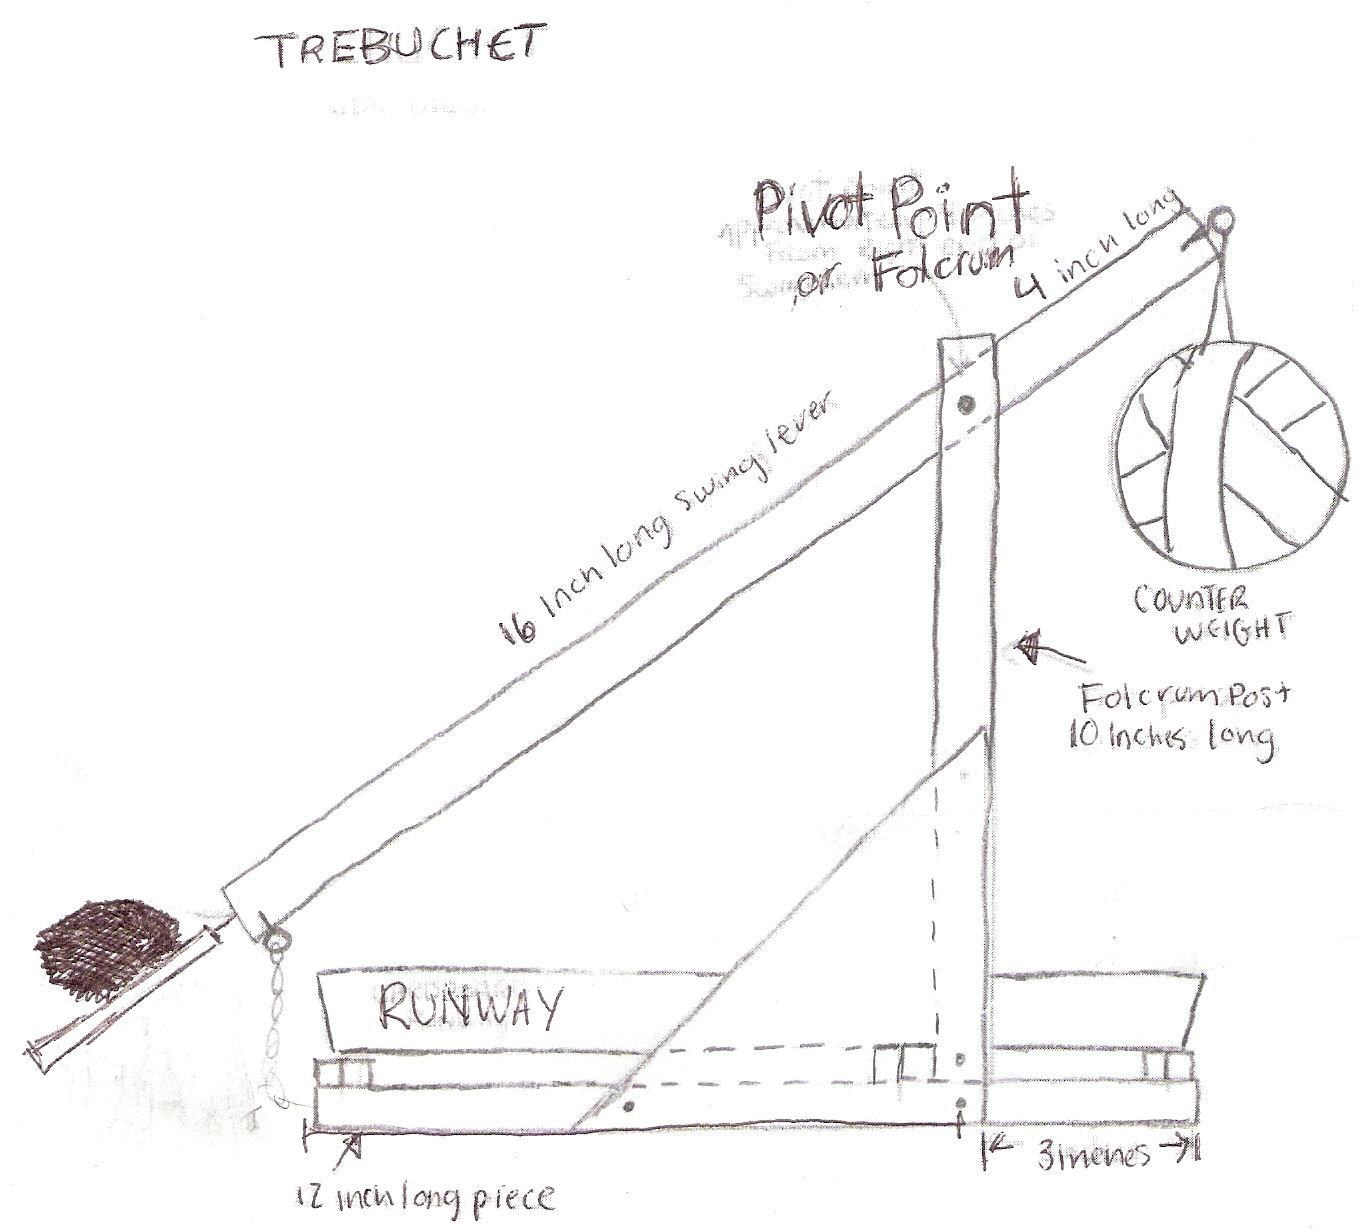 TREBUCHET
Pivot Point
or Folcrum
4 inch long
16 Inch long swing lever
COUNTER
WEIGHT
Folcrum Post
10 Inches long
RUNWAY
3 inches
12 inch long piece